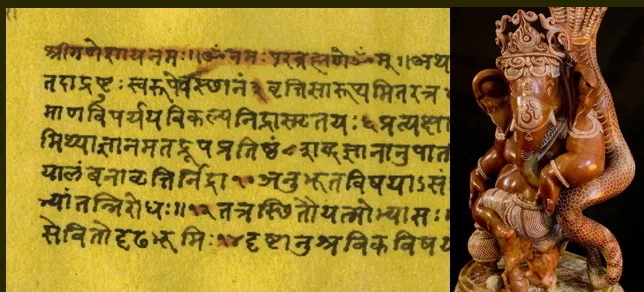 श्रीगणेशायनमः॥ॐ नमः परब्रह्मणेॐम्॥अथ
तदाद्रष्टुःस्वरूपेवस्छानं३वृत्तिसारूप्यमितरत्र
माणविपर्ययविकल्पनिद्रास्मृतयः६प्रत्यक्षा
मिथ्याज्ञानमतद्रूपप्रतिष्ठं८शब्दज्ञानानुपात
यालंबनावृत्तिर्निद्रा१०अनुभूतविषयाऽसं
भ्यांतन्निरोधः॥१२तत्रस्छितौयत्नोभ्यासः॥
सेवितोदृढभूमिः१४दृष्टानुश्रविकविषय